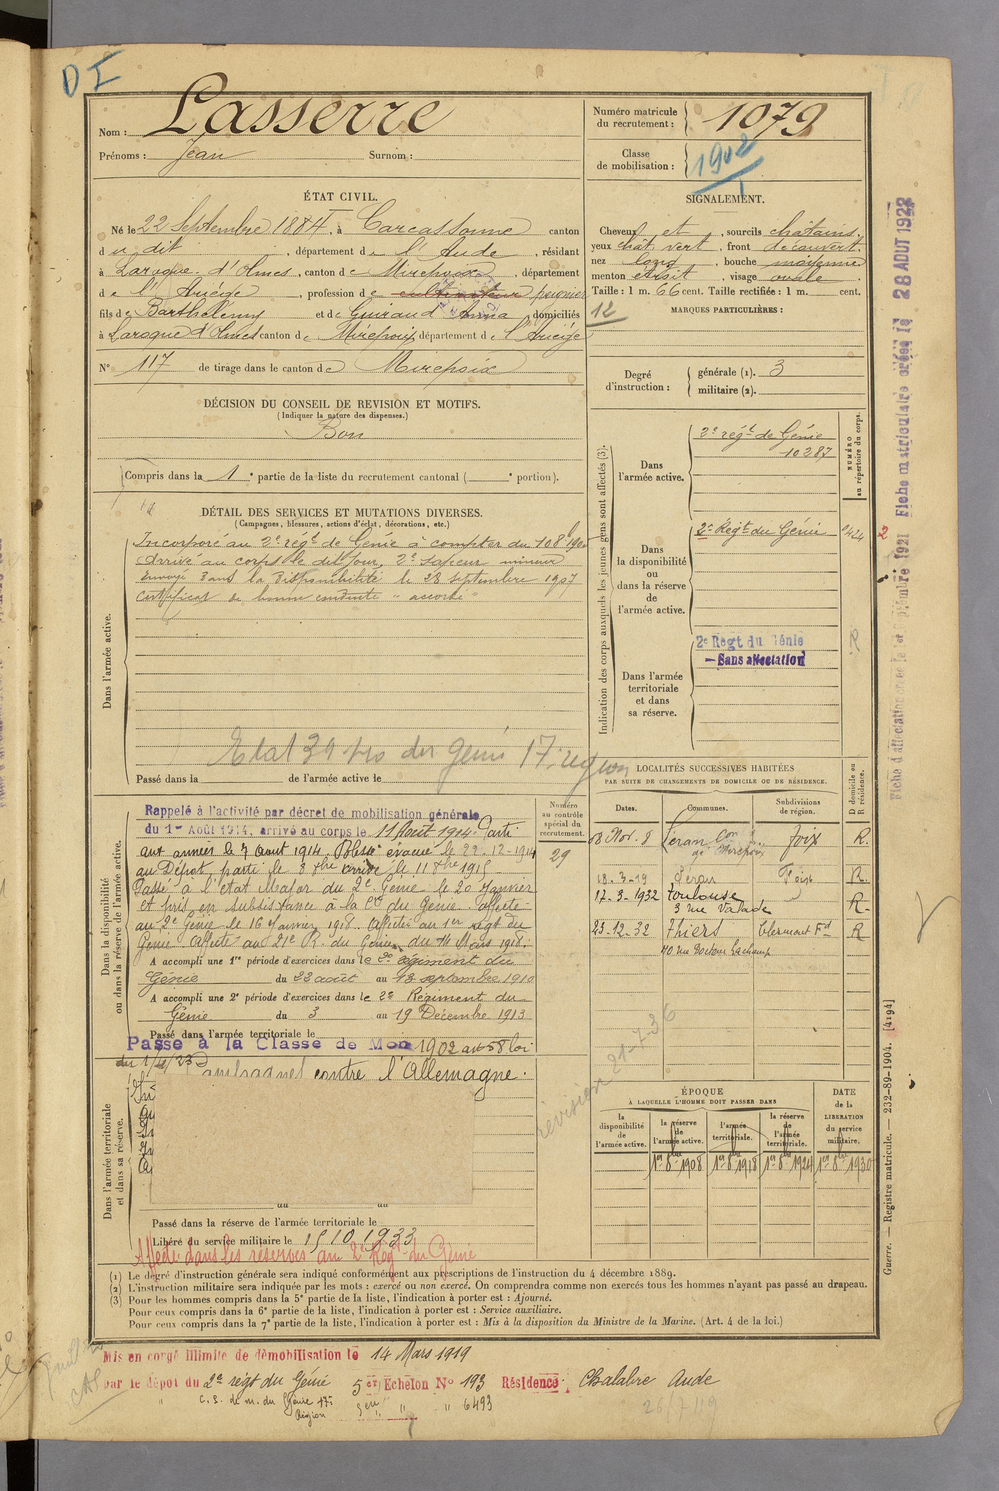 D I
Nom : Lasserre
Prénoms : Jean Surnom :
Numéro matricule du recrutement : 1079
Classe de mobilisation : 1902
ÉTAT CIVIL.
Né le 22 Septembre 1884, à Carcassonne canton
du dit, département de l'Aude, résidant
à Laroque d'Olmes, canton de Mirepoix, département
de l'Ariège, profession de cultivateur peignier
fils de Barthélemy et de Guiraud Anna domiciliés
à Laroque d'Olmes canton de Mirepoix département de l'Ariège
N° 117 de tirage dans le canton de Mirepoix
SIGNALEMENT.
Cheveux et, sourcils chatains,
yeux chat. vert, front découvert,
nez long, bouche moyenne
menton étroit, visage ovale
Taille : 1 m. 66 cent. Taille rectifiée : 1 m. cent.
12
MARQUES PARTICULIÈRES :
Degré d'instruction : générale (1). 3
militaire (2).
DÉCISION DU CONSEIL DE REVISION ET MOTIFS.
(Indiquer la nature des dispenses.)
Bon
Compris dans la 1e partie de la liste du recrutement cantonal ( e portion).
DÉTAIL DES SERVICES ET MUTATIONS DIVERSES.
(Campagnes, blessures, actions d'éclat, décorations, etc.)
Dans l'armée active.
Incorporé au 2e régt de Génie à compter du
Arrivé au corps le dit jour, 2e sapeur mineur
Envoyé dans la Disponibilité le 28 septembre 1907
Certificat de bonne conduite "accordé"
Etat du Génie 17e région
Passé dans la de l'armée active le
Indication des corps auxquels les jeunes gens sont affectés (3).
NUMÉRO au répertoire du corps.
Dans l'armée active.
2e régt de Génie
10287
Dans la disponibilité ou dans la réserve de l'armée active.
2e Régt du Génie
Dans l'armée territoriale et dans sa réserve.
2e Régt du Génie
— Sans affectation
R
Dans la disponibilité ou dans la réserve de l'armée active.
Rappelé à l'activité par décret de mobilisation générale
du 1er Août 1914, arrivé au corps le 11 Août 1914. Parti
aux armées le 7 Aout 1914 Blessé évacué le 22-12-1914
au Dépôt, parti le 8 arrivé le 11 1915
Passé à l'état Major du 2e Génie le 20 Janvier
et pris en subsistance à la Cie du Génie. affecté
au 2e Génie le 16 Janvier 1918. Affecté au 1er régt du
Génie Affecté au 21e R. du Génie du 14 Mars 1918.
A accompli une 1re période d'exercices dans le 2e régiment du
Génie du 22 août au 13 septembre 1910
A accompli une 2e période d'exercices dans le 2e Régiment du
Génie du 3 au 19 Décembre 1913
Passé dans l'armée territoriale le
Passé à la Classe de Mon 1902 art 58 loi
du 1/4/23
Numéro au contrôle spécial du recrutement.
29
LOCALITÉS SUCCESSIVES HABITÉES
PAR SUITE DE CHANGEMENTS DE DOMICILE OU DE RÉSIDENCE.
Dates. Communes. Subdivisions de région. D domicile ou R résidence.
Nov. 8 Léran Con de Mirepoix Foix R.
18-3-19 Léran Foix R
12-3-1932 Toulouse R
3 rue Valade
23-12-32 Thiers Clermont Fd R
40 rue Docteur Lachamp
révision 21-7-36
Dans l'armée territoriale et dans sa réserve.
contre l'Allemagne.
au au
Passé dans la réserve de l'armée territoriale le
Libéré du service militaire le 15 10 1933
Affecté dans les réserves au 2e Régt du Génie
ÉPOQUE
À LAQUELLE L'HOMME DOIT PASSER DANS
la disponibilité de l'armée active. la réserve de l'armée active. l'armée territoriale. la réserve de l'armée territoriale.
DATE de la LIBÉRATION du service militaire.
1er 8bre 1908 1er 8bre 1918 1er 8bre 1924 1er 8bre 1930
(1) Le degré d'instruction générale sera indiqué conformément aux prescriptions de l'instruction du 4 décembre 1889.
(2) L'instruction militaire sera indiquée par les mots : exercé ou non exercé. On comprendra comme non exercés tous les hommes n'ayant pas passé au drapeau.
(3) Pour les hommes compris dans la 5e partie de la liste, l'indication à porter est : Ajourné.
Pour ceux compris dans la 6e partie de la liste, l'indication à porter est : Service auxiliaire.
Pour ceux compris dans la 7e partie de la liste, l'indication à porter est : Mis à la disposition du Ministre de la Marine. (Art. 4 de la loi.)
Mis en congé illimité de démobilisation le 14 Mars 1919
par le dépôt du 2e régt du Génie 5er Echelon N° 193 Résidence : Chalabre Aude
" C.S. de m. du Génie 17e Région " " 6493
26/7/19
Guerre. — Registre matricule. — 232-89-1904. [4194]
Fiche matriculaire créée le 28 AOUT 1922